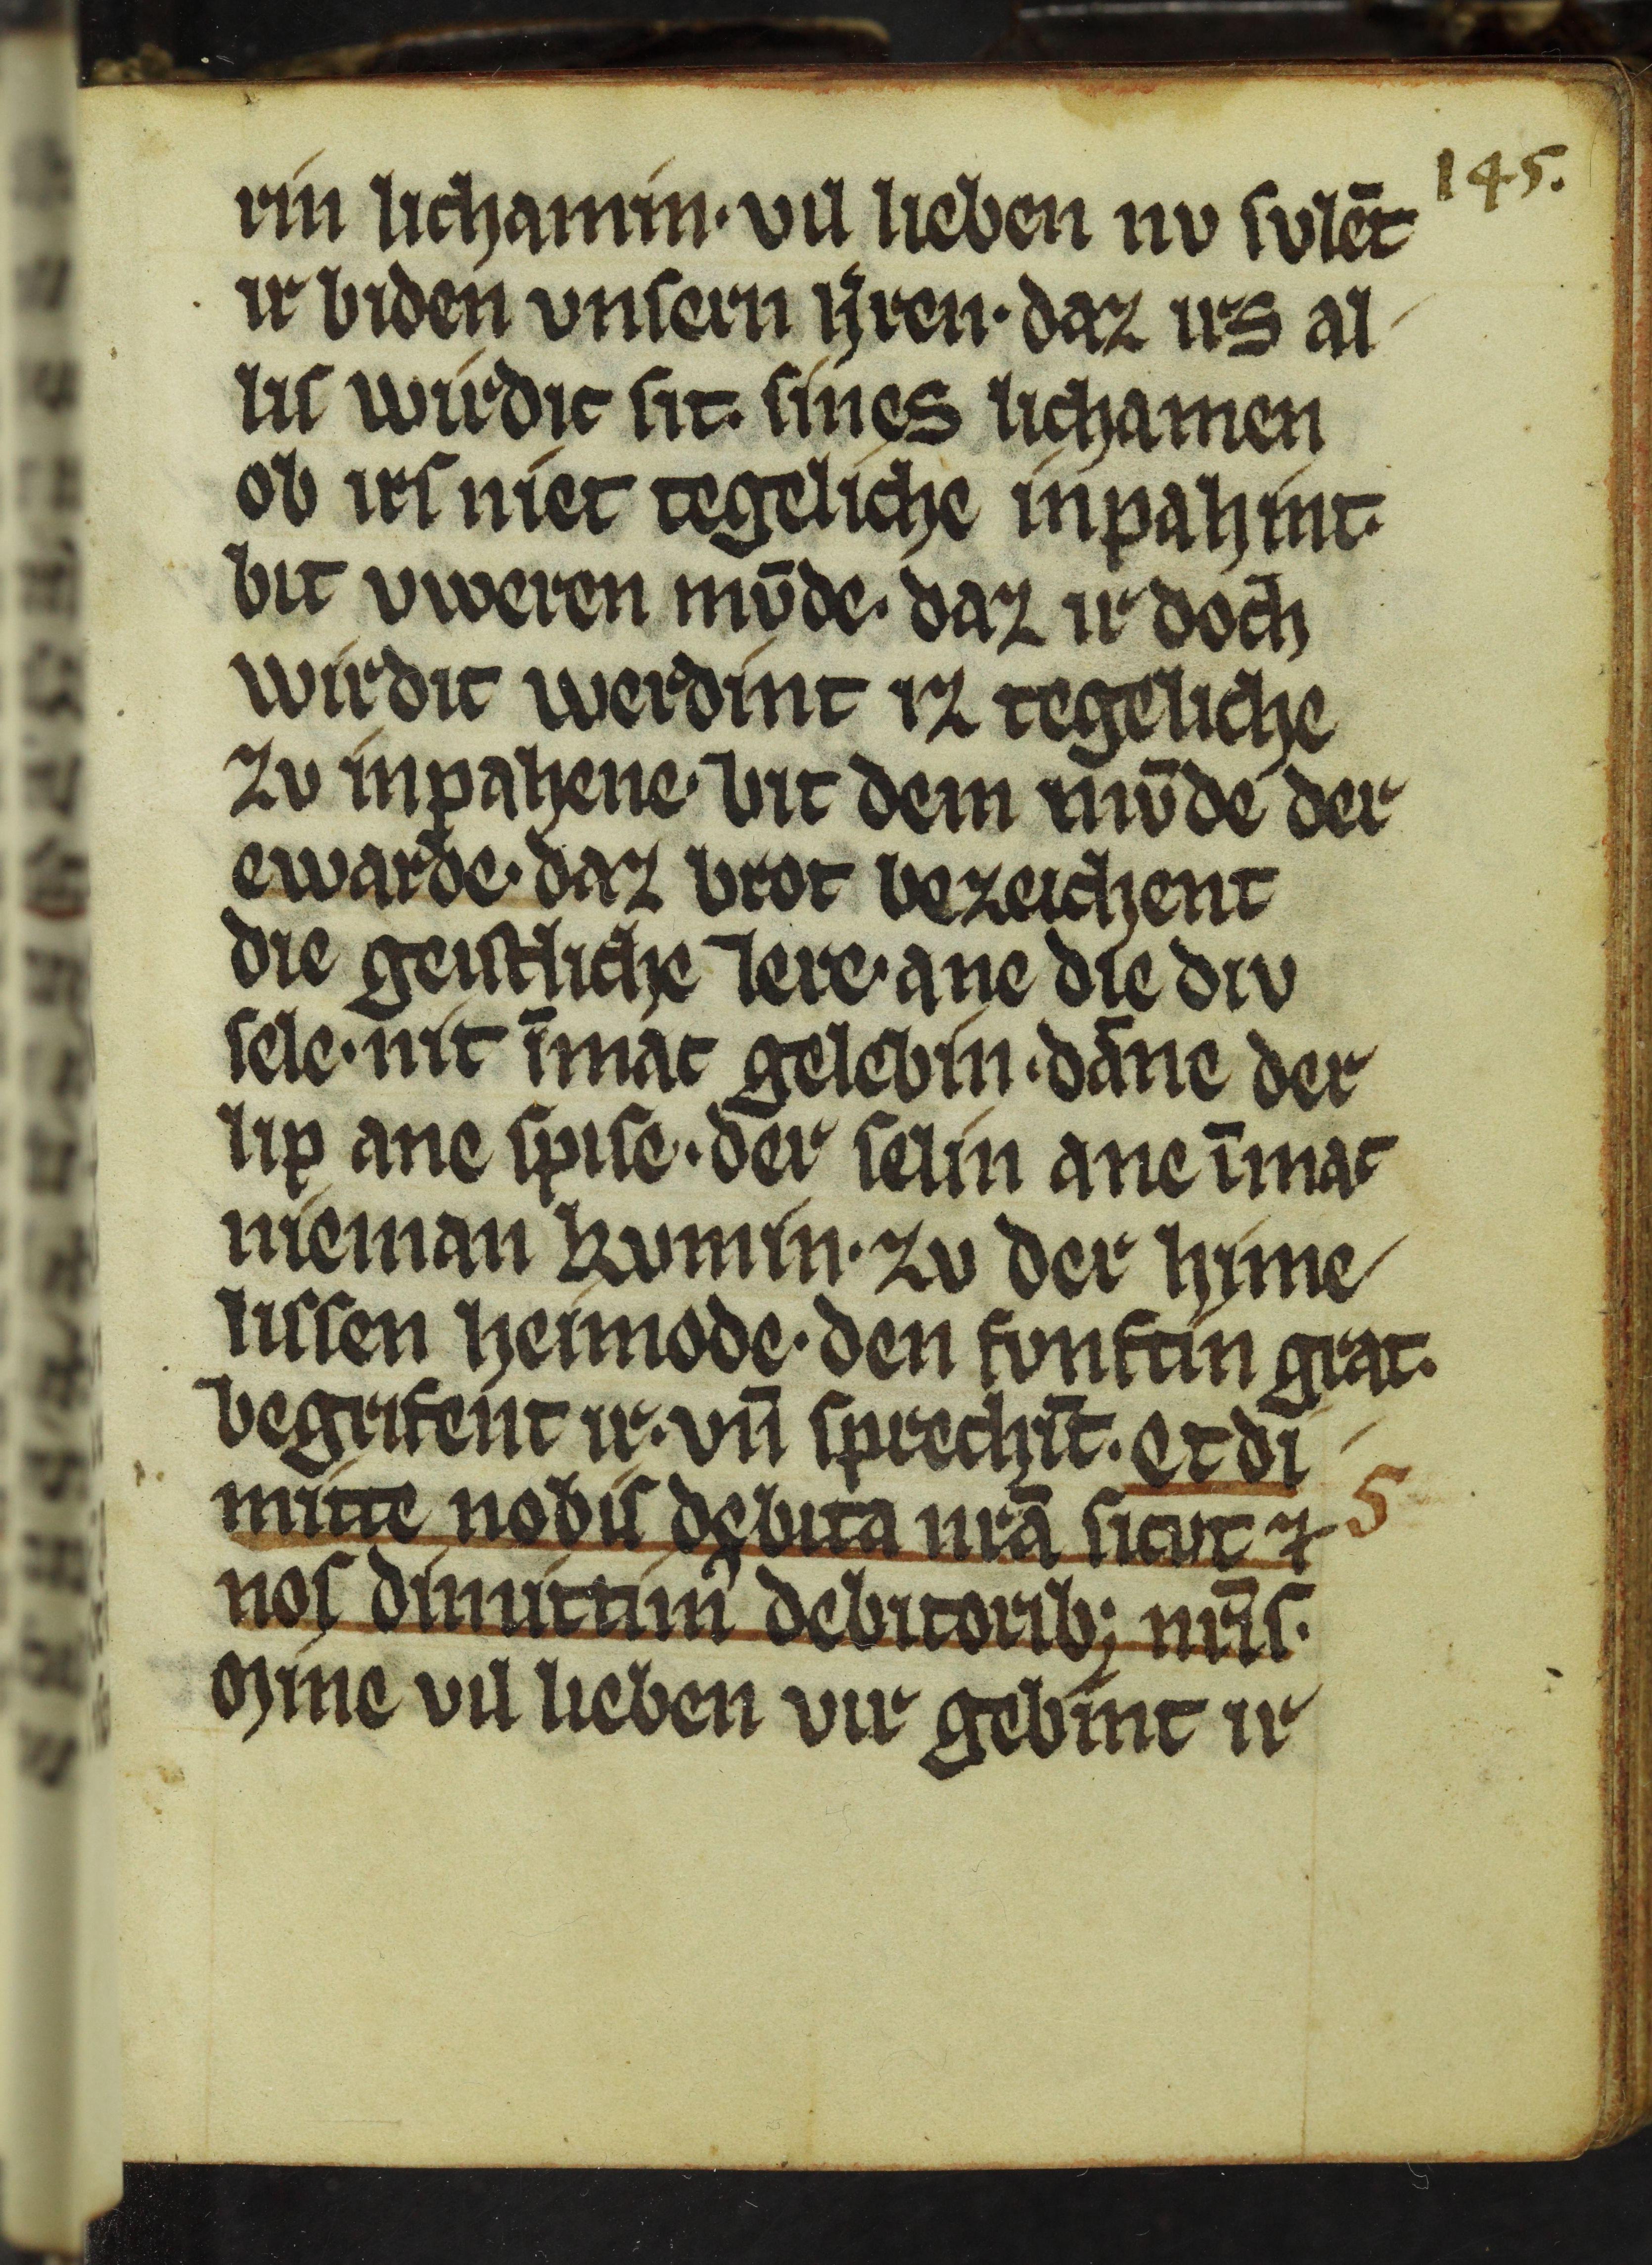 145.
rin lichamin· vil lieben nv svlēt
ir biden vnsern h̄ren· daz irs al
lis wirdic sit· sines lichamen
ob irs niet tegeliche inpahint·
bit vweren mv̄de· daz ir doch
wirdic werdint iz tegeliche
zv inpahene· bit dem mv̄de der
ewarde· daz brot bezeichent
die geistliche lere· ane die div
sele· nit īmac gelebin· dāne der
lip ane spise· der selin ane īmac
nieman kvmin· zv der hime
lissen heimode· den fvnftin grat·
begrifent ir· vn̄ sprechīt· Et di
mitte nobis dębita nr̄a sicvt ⁊
nos dimittimꝰ debitorib; nr̄is·
Mine vil lieben vir gebint ir
5